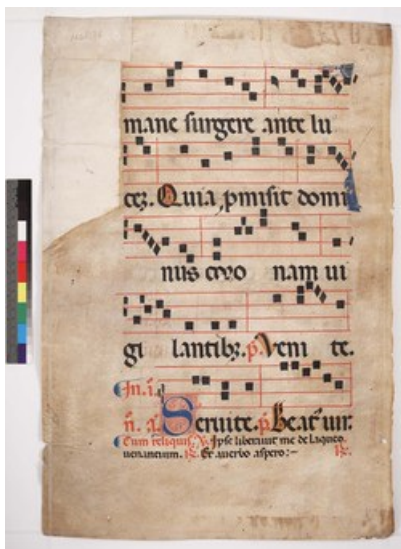 mane surgere ante lu
cez. Quia ꝓmisit domi
nus coro nam ui
gi lantibꝫ. p̄. Veni te.
In. i.
n. a. Seruite. p̄. Beat' uir.
Cum reliquis. ℣. Ipse liberauit me de laqueo
uenantium. ℟. Et a uerbo aspero:~